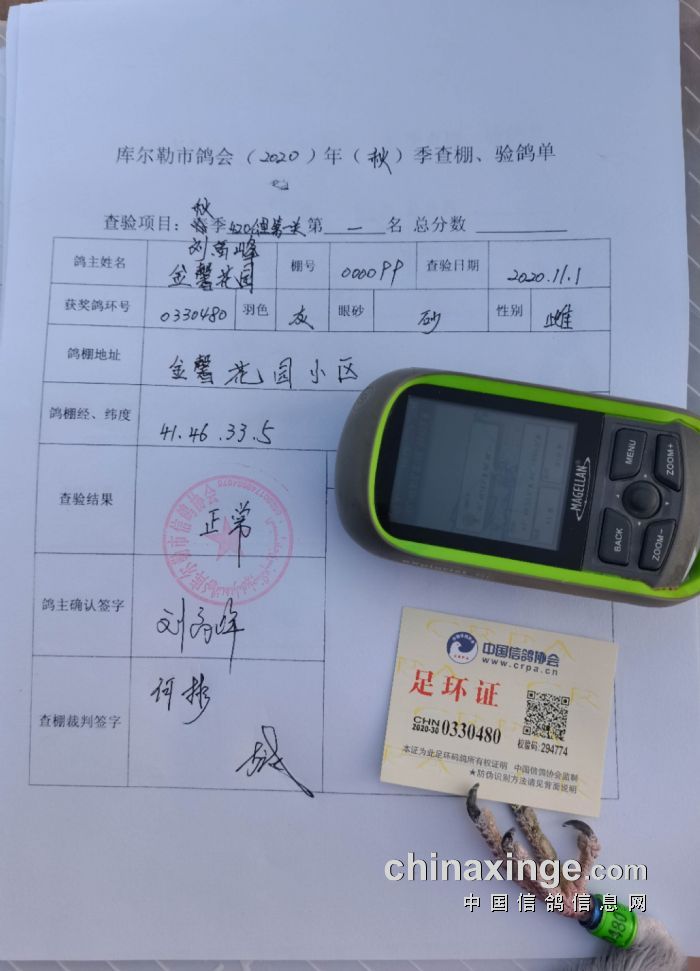 库尔勒市鸽会（2020）年（秋）季查棚、验鸽单
秋
查验项目：春季 第一名 总分数
鸽主姓名
金馨花园
棚号 000099 查验日期 2020.11.1
获奖鸽环号 0330480 羽色 灰 眼砂 砂 性别 雌
鸽棚地址 金馨花园小区
鸽棚经、纬度 41.46.33.5
查验结果 正常
库尔勒市信鸽协会
鸽主确认签字
查棚裁判签字
MAGELLAN
MENU
ZOOM+
BACK
ZOOM-
中国信鸽协会
CRPA
www.crpa.cn
足环证
CHN
2020-30 0330480
校验码: 294774
本证为此足环码鸽所有权证明 中国信鸽协会监制
★防伪识别方法请见背面说明
480
chinaxinge.com
中国信鸽信息网